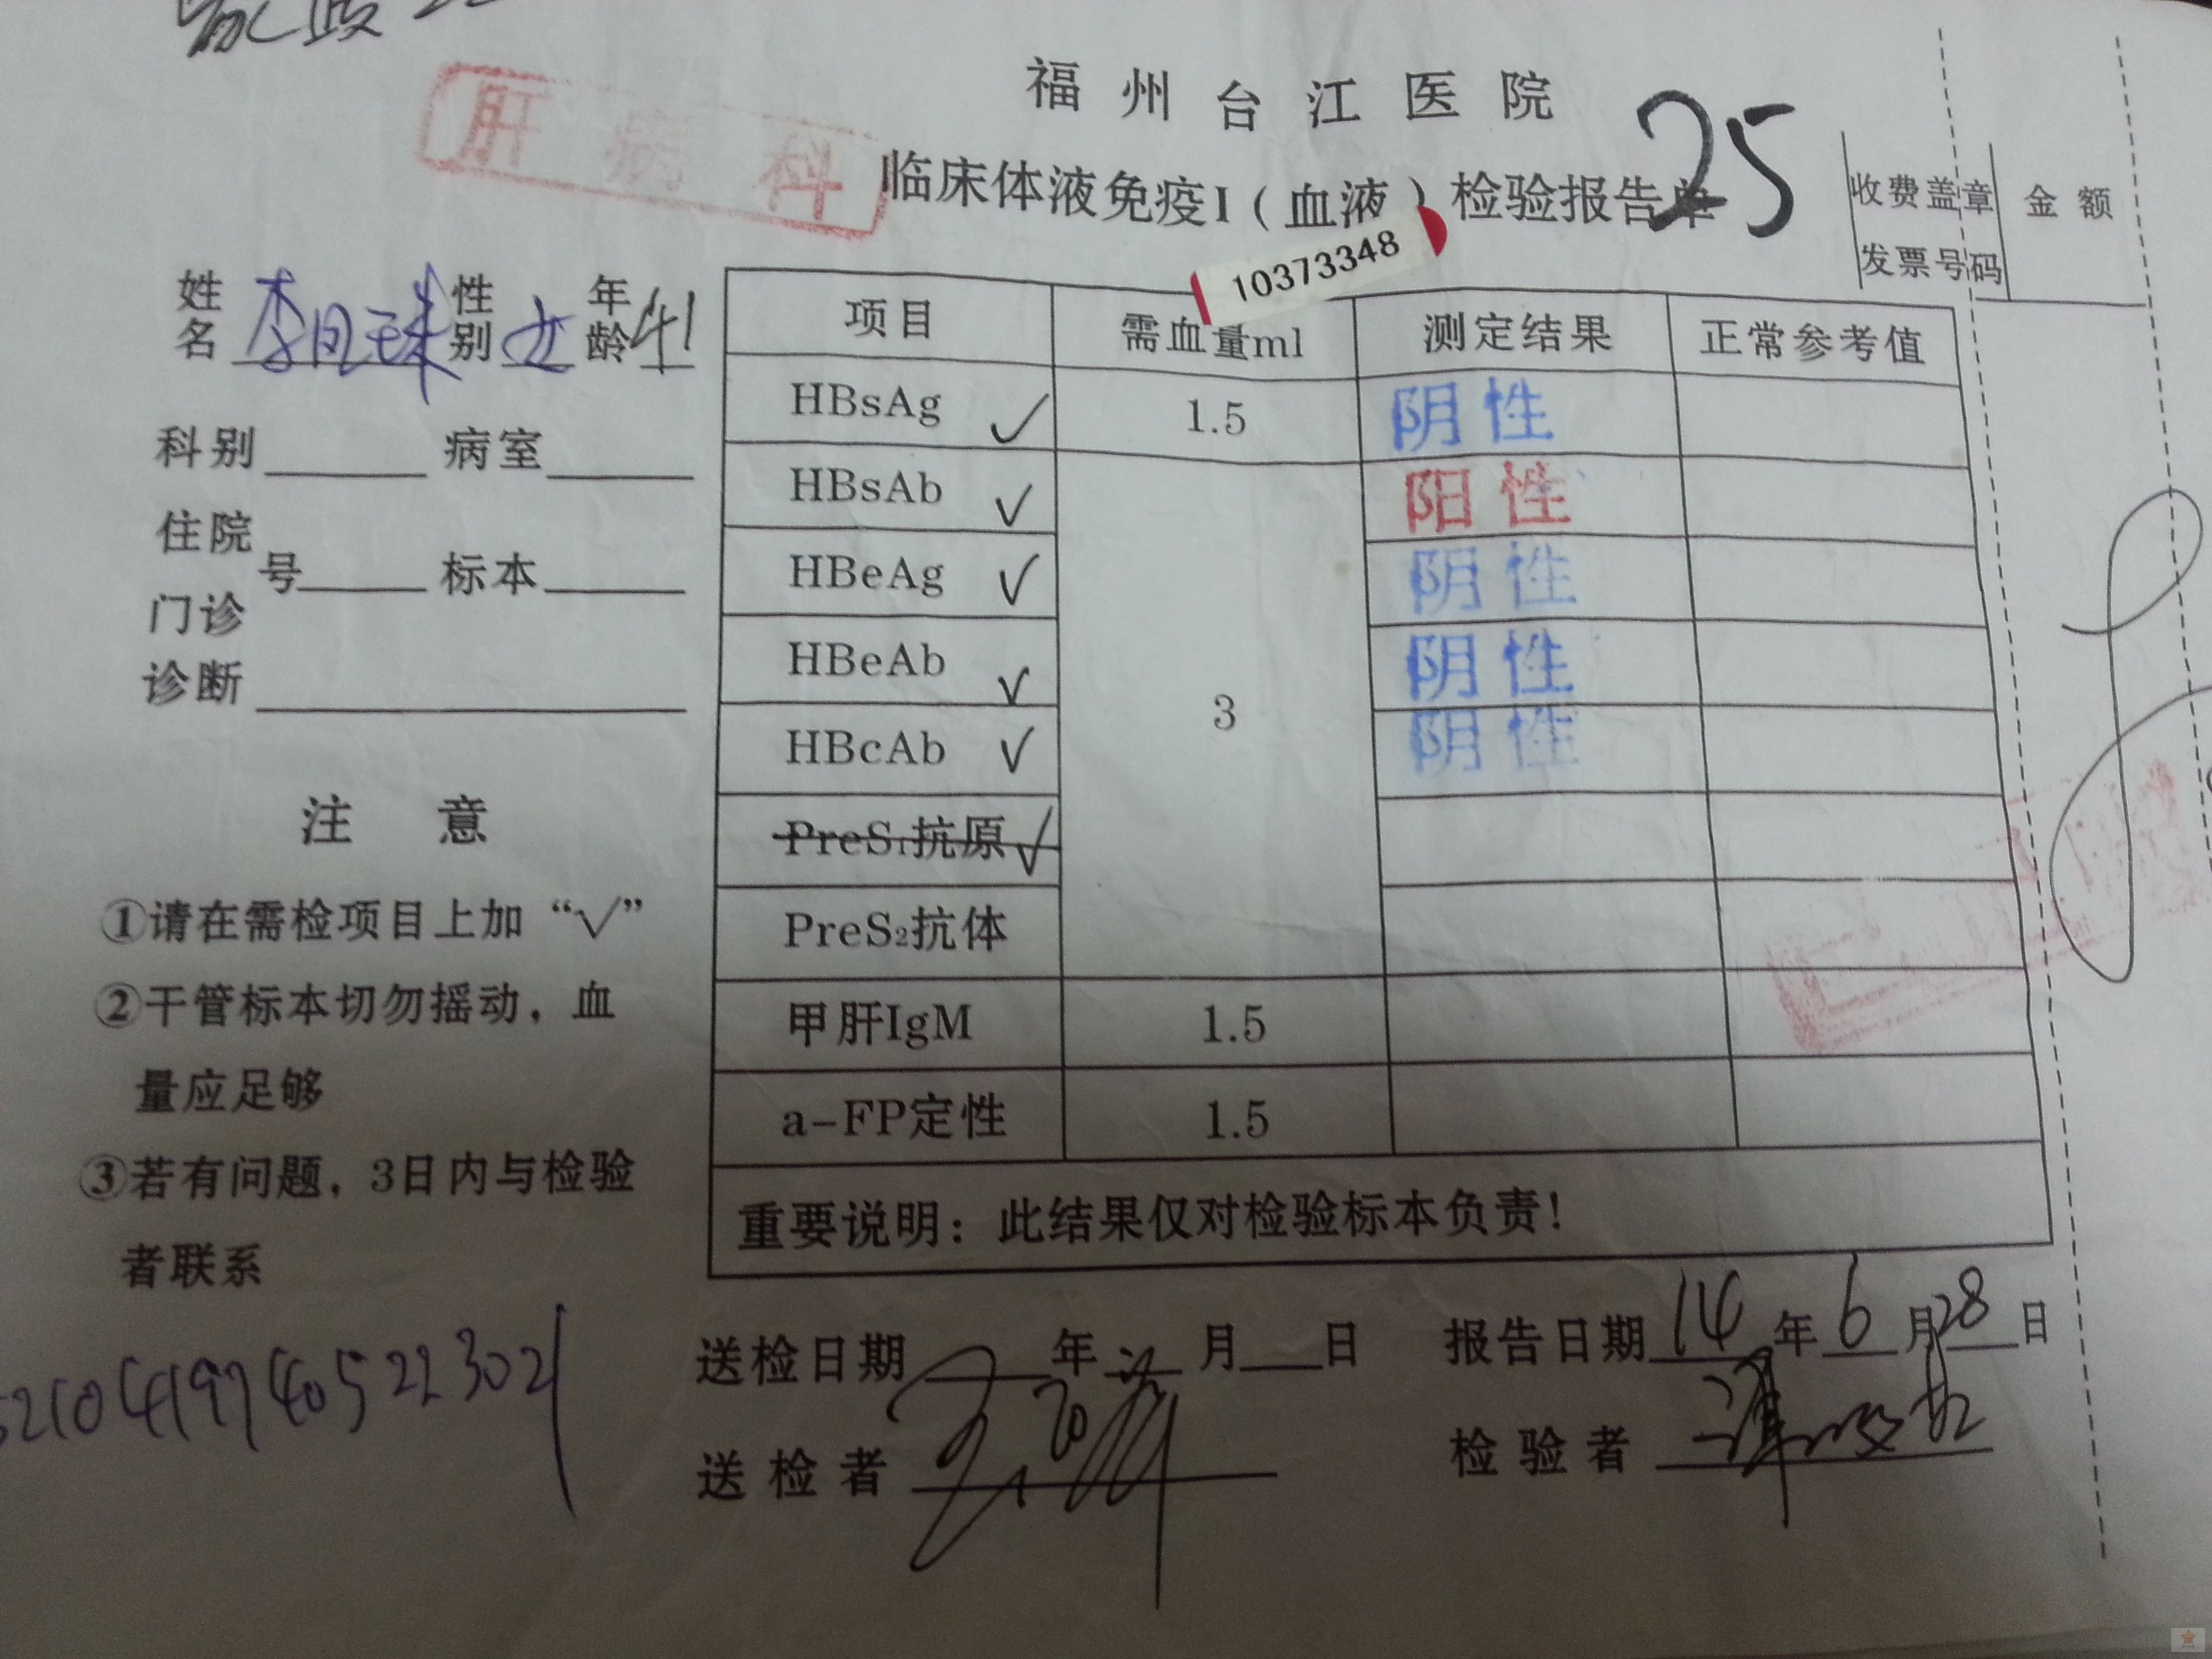 肝病科
福州台江医院
25
临床体液免疫I（血液）检验报告单
10373348
收费盖章 金额
发票号码
姓名 性别 女 年龄 41
科别 病室
住院
号 标本
门诊
诊断
项目 需血量ml 测定结果 正常参考值
HBsAg ✓ 1.5 阴性
HBsAb ✓ 阳性
HBeAg ✓ 阴性
HBeAb ✓ 3 阴性
HBcAb ✓ 阴性
PreS₁抗原 ✓
PreS₂抗体
甲肝IgM 1.5
a-FP定性 1.5
重要说明：此结果仅对检验标本负责！
注意
①请在需检项目上加“√”
②干管标本切勿摇动，血
量应足够
③若有问题，3日内与检验
者联系
送检日期 年 月 日 报告日期 14 年 6 月 28 日
送检者 检验者